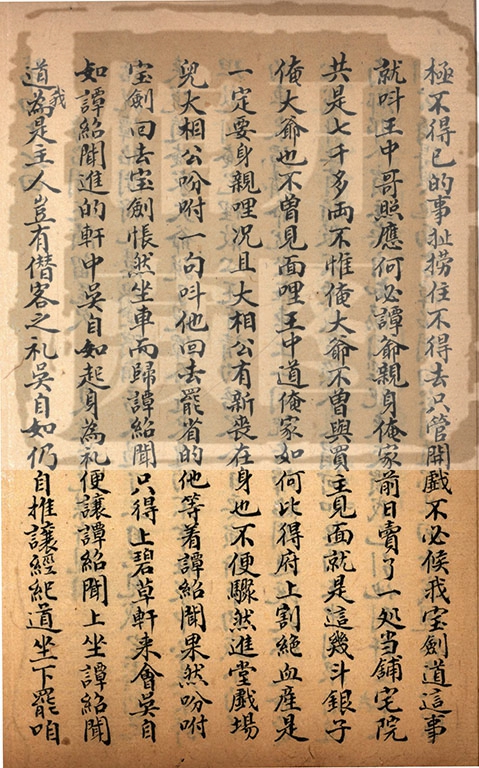 極不得已的事扯撈住不得去只管開戯不必候我宝劍道這事
就呌王中哥照應何必譚爺親身俺家前日賣了一処当鋪宅院
共是七千多両不惟俺大爺不曽與買主見面就是這幾斗銀子
俺大爺也不曽見面哩王中道俺家如何比得府上割絶血産是
一定要身親哩况且大相公有新丧在身也不便驟然進堂戯場
兒大相公吩咐一句呌他回去罷省的他等着譚紹聞果然吩咐
宝劍回去宝劍悵然坐車而歸譚紹聞只得上碧草軒来會吳自
如譚紹聞進的軒中吳自如起身為礼便讓譚紹聞上坐譚紹聞
道我為是主人豈有僣客之礼吳自如仍自推讓經紀道坐下罷咱